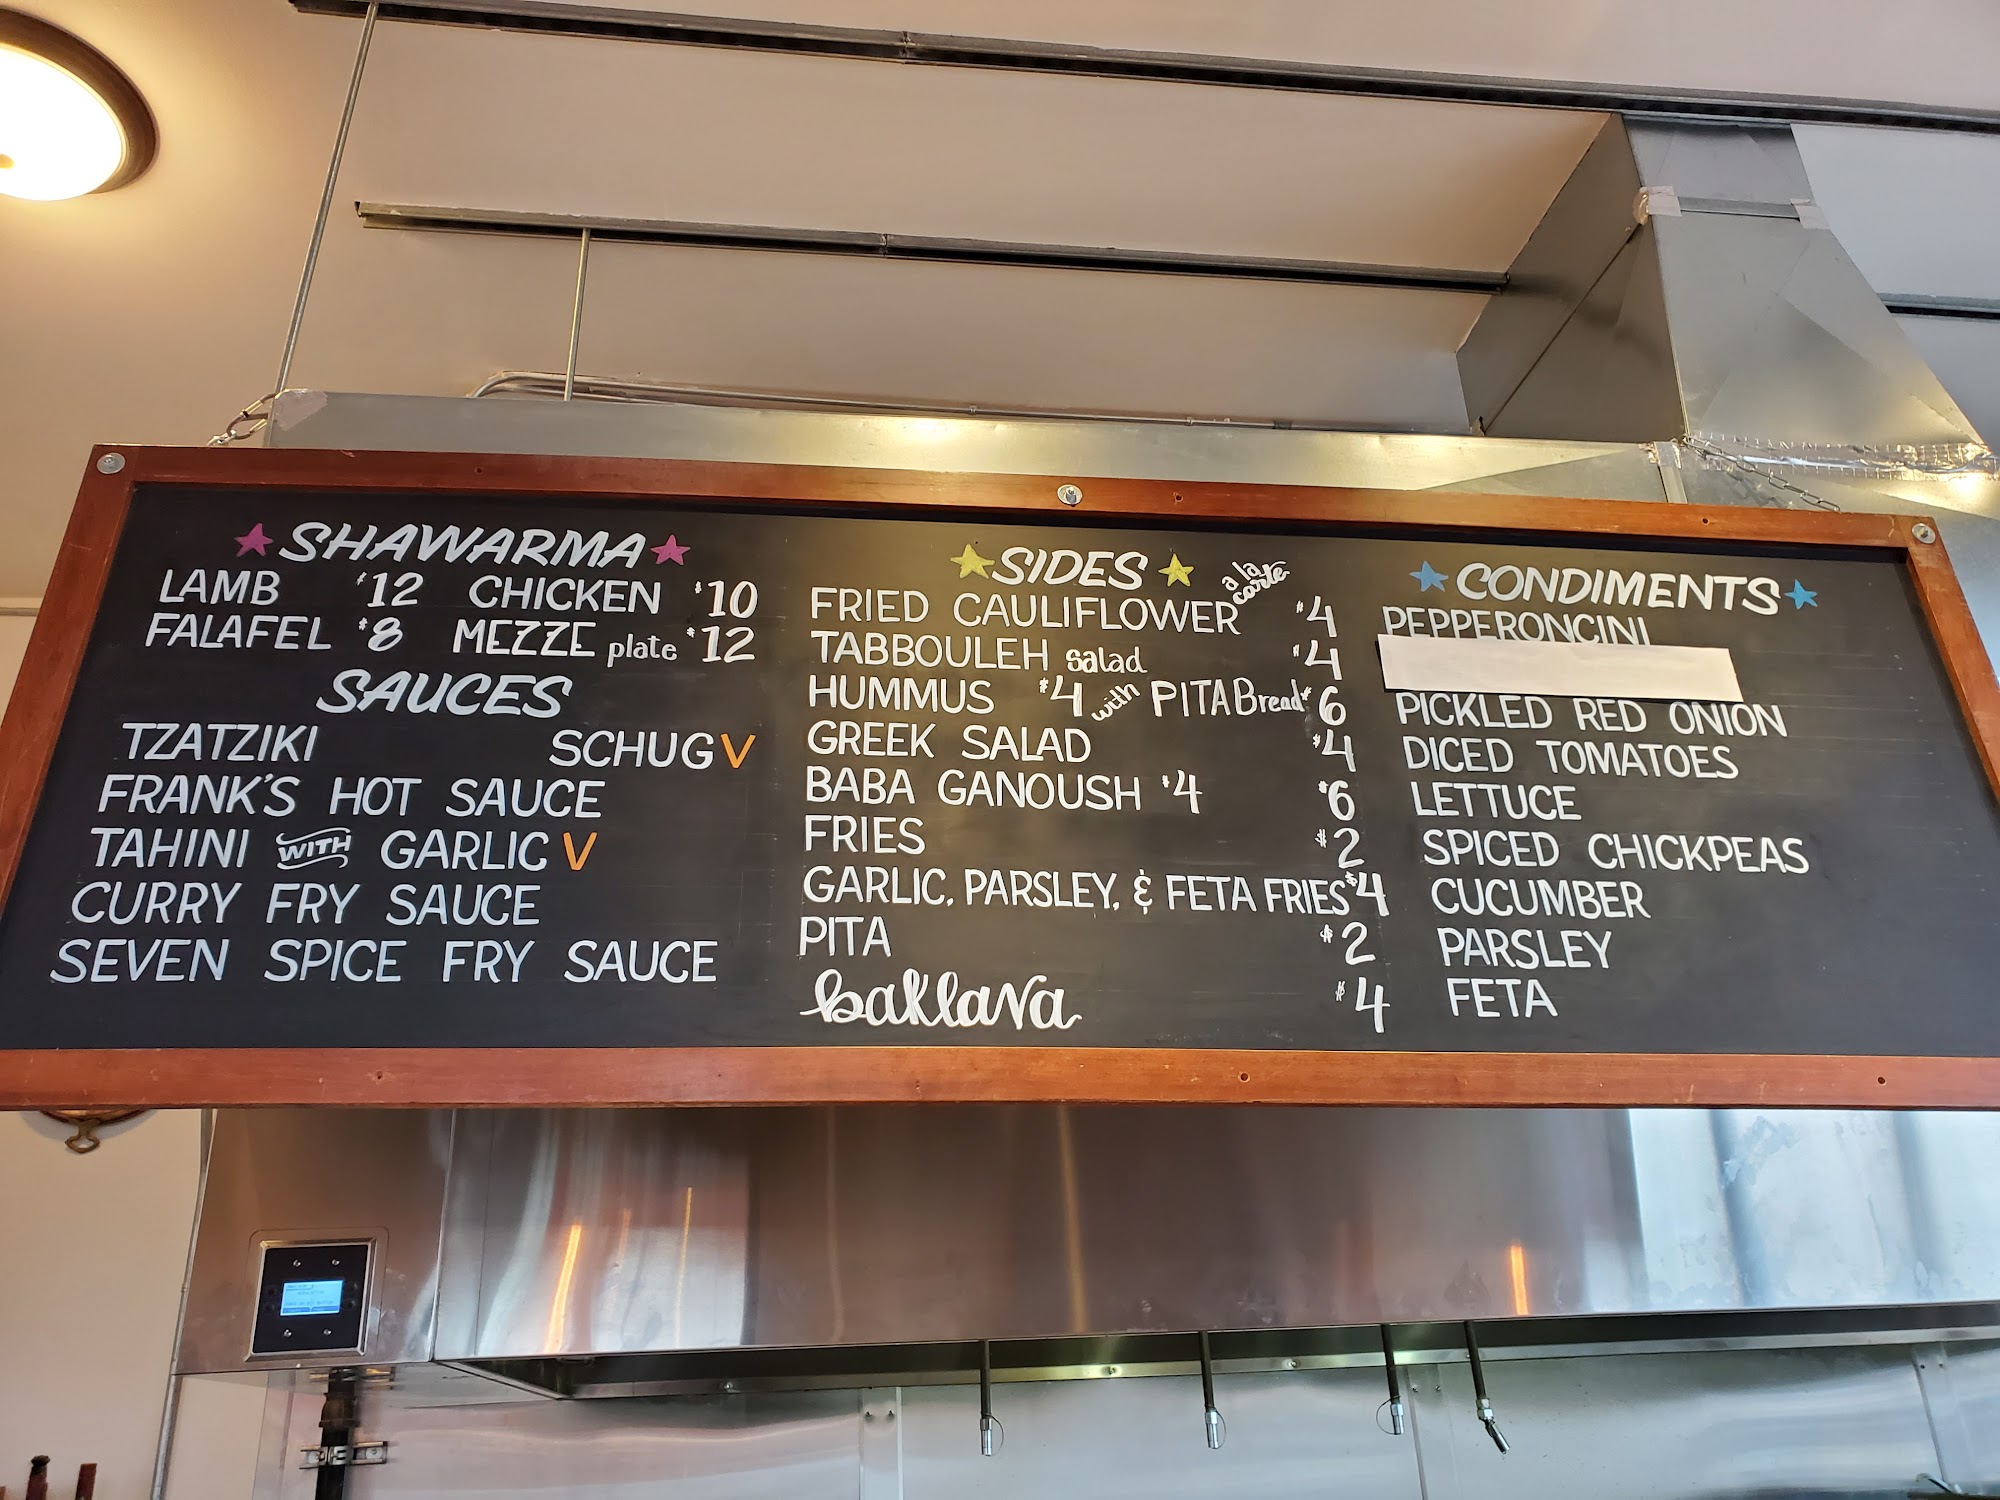 SHAWARMA
LAMB $12 CHICKEN $10
FALAFEL $8 MEZZE plate $12
SAUCES
TZATZIKI SCHUG V
FRANK'S HOT SAUCE
TAHINI WITH GARLIC V
CURRY FRY SAUCE
SEVEN SPICE FRY SAUCE
SIDES
FRIED CAULIFLOWER a la carte $4
TABBOULEH salad $4
HUMMUS $4 with PITA Bread $6
GREEK SALAD $4
BABA GANOUSH $4 $6
FRIES $2
GARLIC, PARSLEY, & FETA FRIES $4
PITA $2
baklava $4
CONDIMENTS
PEPPERONCINI
PICKLED RED ONION
DICED TOMATOES
LETTUCE
SPICED CHICKPEAS
CUCUMBER
PARSLEY
FETA